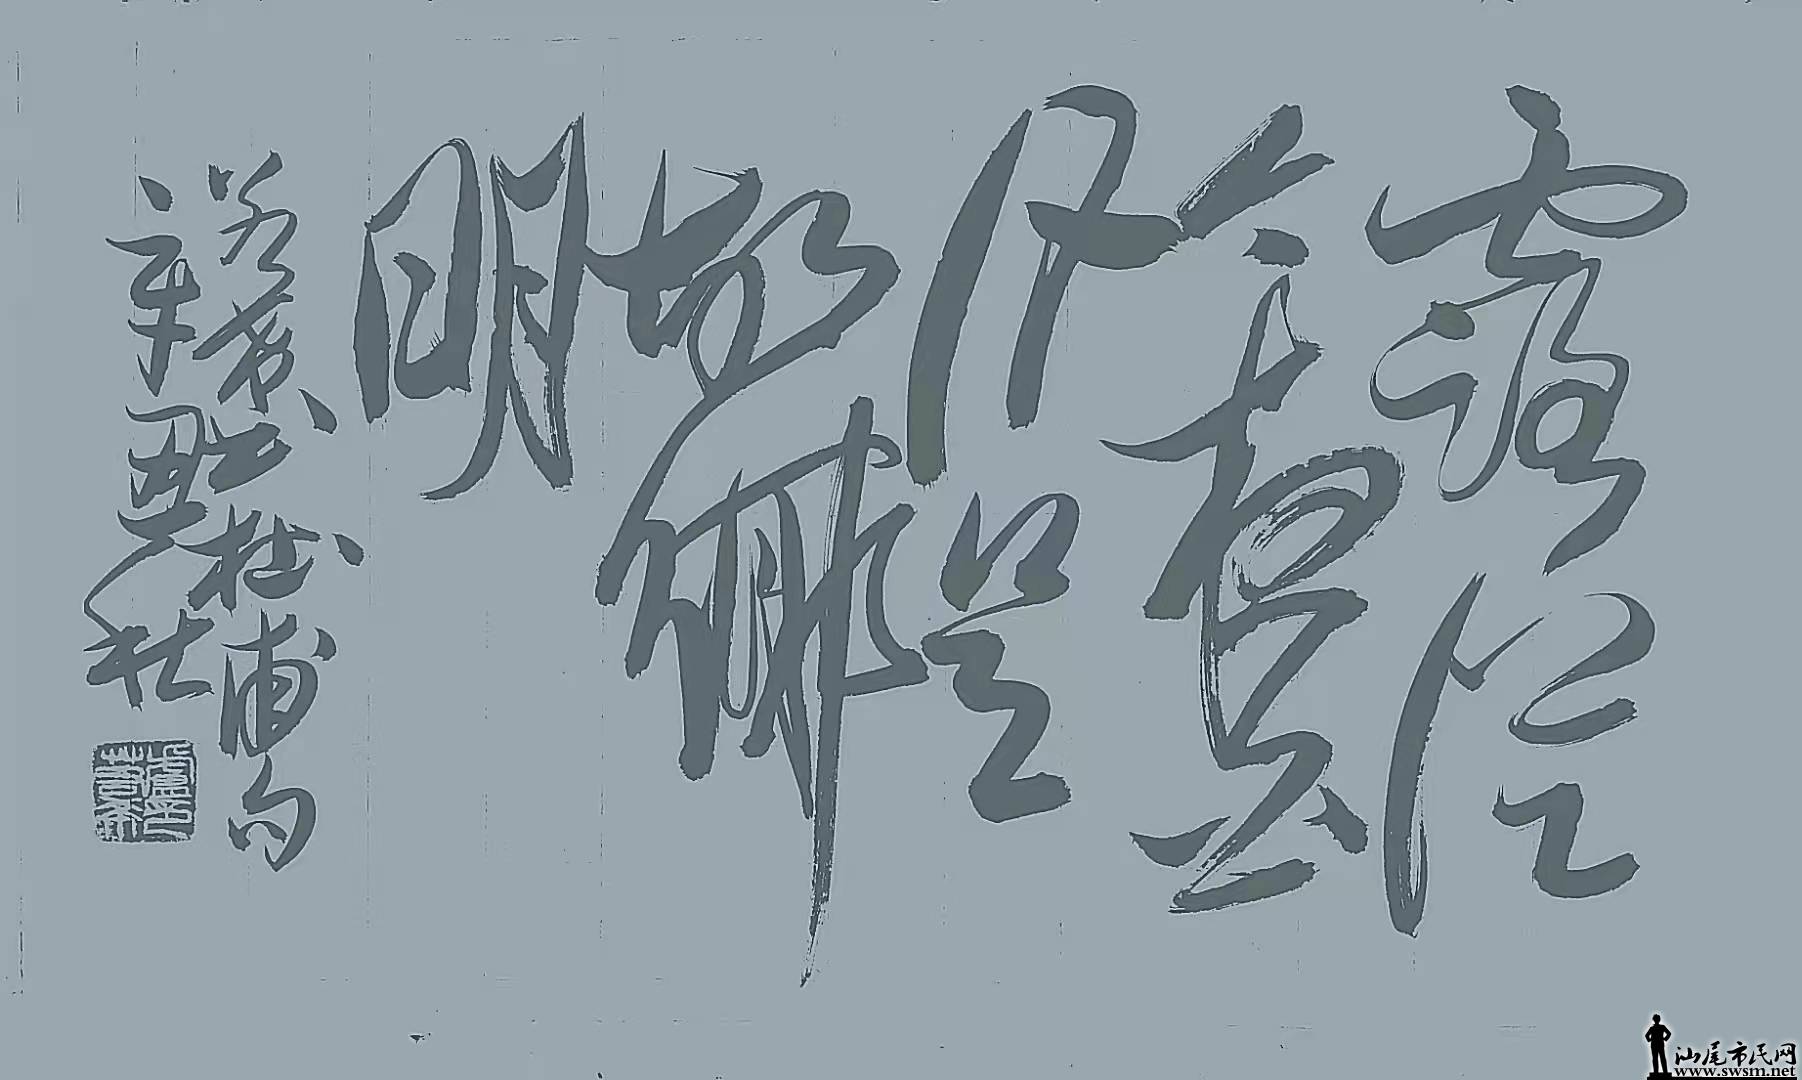 露從
今夜白
月是
故鄉
明
節录杜甫句
辛丑秋
汕尾市民网
www.swsm.net